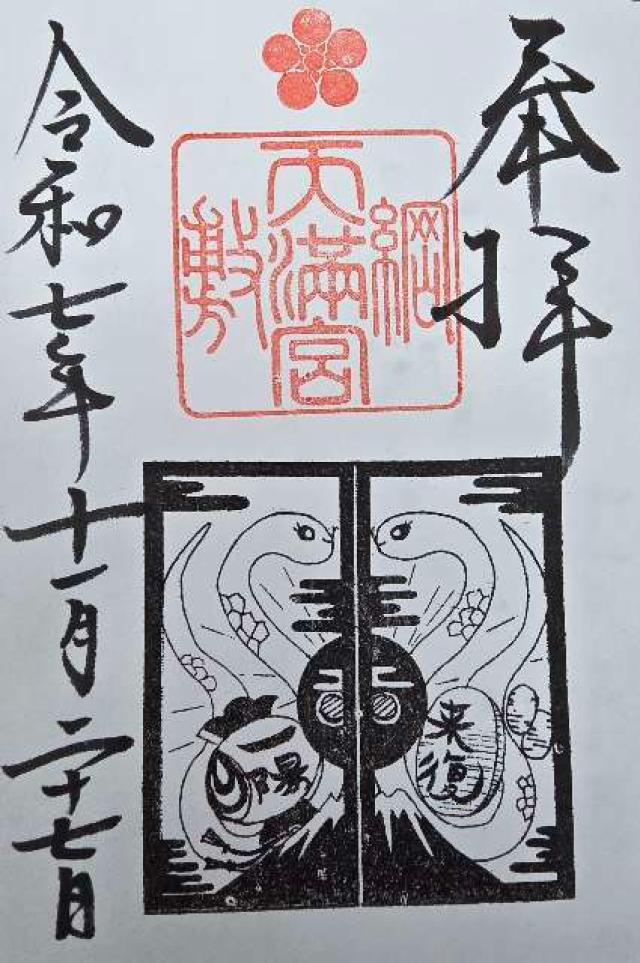 奉拝
綱敷天満宮
一陽
来復
令和七年十一月二十七日